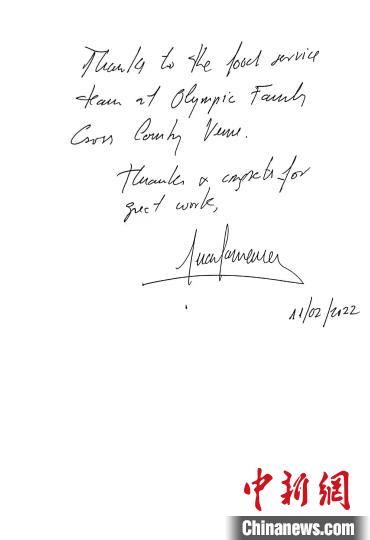 Thanks to the food service
team at Olympic Family
Cross Country Venue.
Thanks & congrats for
great work,
11/02/2022
中新網
Chinanews.com